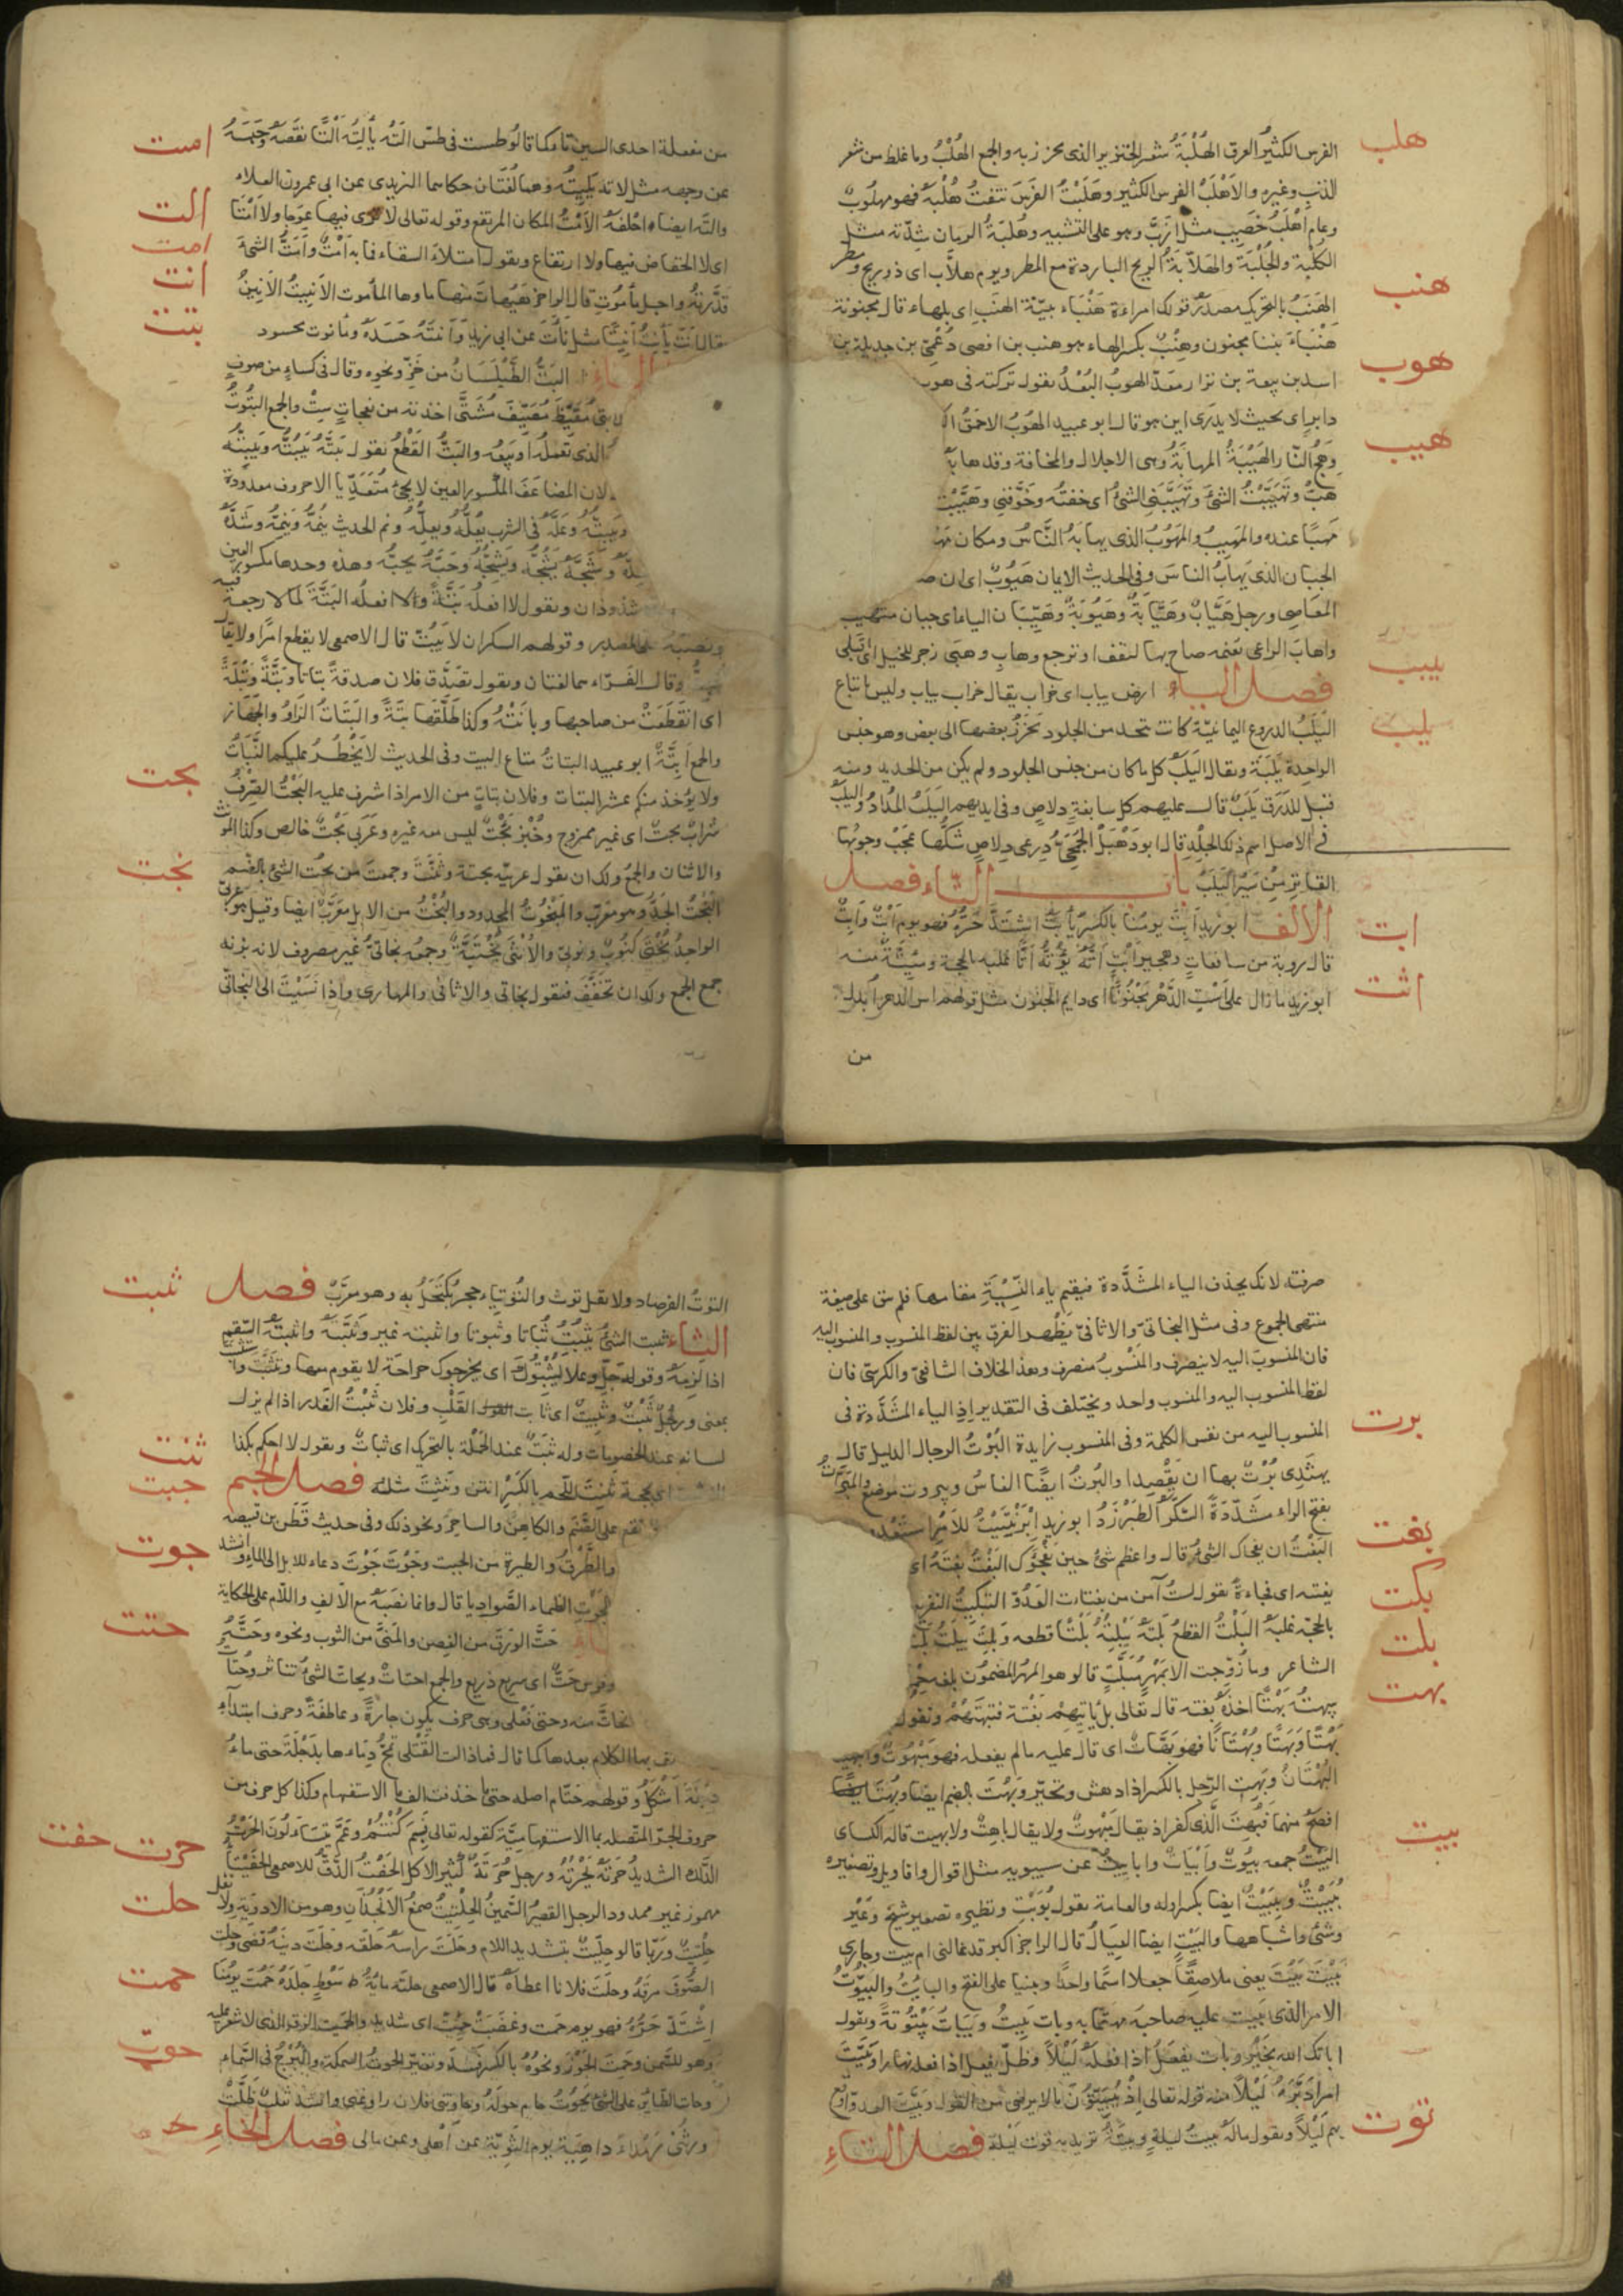 الفرس الكثير العرق الهُلْبَةُ شعر الخنزير الذى يخرز به والجمع الهُلْبُ وما غلظ من شعر
هلب
الذنب وغيره والاَهْلَبُ الفرس الكثير وهَلَبْتُ الفَرَسَ نتفتُ هُلْبَه فهو مهلُوبٌ
وعام اَهْلَبُ خَصيب مثل ازَبَّ وهو على التشبيه وهُلْبَةُ الزمان شدّته مثل
الكُلْبَة والجُلْبَة والهَلاّبَةُ الريح الباردة مع المطر ويوم هلاَّب اى ذو ريح ومطر
هنب
الهَنَبُ بالتحريك مصدر قولك امراءة هَنْبَاء بيّنة الهنَب اى بلهاء قال مجنونة
هَنْبَاءُ بنت مجنون وهِنْبٌ بكسر الهاء هو هنب بن افصى دُعْمِىّ بن جديلة بن
هوب
اسد بن ربيعة بن نزار معدّ الهوبُ البُعْدُ نقول تركته فى هوب
دابر اى بحيث لا يدرى اين هو قال ابو عبيد الهَوبُ الاحمق
هيب
وهج النّار الهَيْبَةُ المهابَةُ وهى الاجلال والمخافة وقد هابه
هَبْ وتَهَيَّبْتُ الشئَ وتَهَيَّبَنى الشئُ اى خفتُه وخَوَّفنى وهَيَّبْت
مَهيبًا عنده والمَهيبُ والمَهوُبُ الذى يهابُهُ النَّاسُ ومكان
الجبان الذى يَهابُ الناسَ وفى الحديث الايمان هَيُوبٌ اى ان صـ
المعاصى ورجل هَيَّابٌ وهَيَّابَةٌ وهَيُوبَةٌ وهَيّبَان الياء اى جبان متهيب
واهابَ الراعى بغنمه صاح بها لتقف او ترجع وهابِ وهَبى زجر للخيل اى اقبلى
يبب
فصل الياء ارض يباب اى خراب يقال خراب يباب وليس باتباع
يلب
اليَلَبُ الدروع اليمانيّة كانت تتخذ من الجلود تخرز بعضها الى بعض وهو جنس
الواحدة يَلَبَة ويقال اليَلَب كل ما كان من جنس الجلود ولم يكن من الحديد ومنه
قيل للدَرَق يَلَبٌ قال عليهم كل سابغة دلاص وفى ايديهم اليَلَبُ المُدارُ واليلَب
فى الاصل اسم ذلك الجلد قال ابو دَهْبَل الجُمَحِىُّ دِرعى دِلاص شَكُّها عَجَبٌ وجوبُها
القاتر من سَيْر اليَلَبْ باب التّاء فصل
ابت
الالف ابو زيد اَبِتَ يومُنا بالكسر يأبَت اشتَدَّ حَرُّه فهو يوم اَبْتٌ وآبِتٌ
اتت
قال روبة من سافعاتٍ وهجيرٍ اَبْتِ اَتَّهُ يؤُتُّهُ اَتًّا غلبه بالحجة ومئتّةٌ منه
ابو زيد ما زال على اَسْتِ الدَّهْر مَجْنُونًا اى دايم الجنون مثل قولهم اس الدهر ابدل
من
من مفعلة احدى السين تا كما قالوا طست فى طسّ اَلَتَه يَأْلِتُه اَلْتًا نقَصَه وحَبَسَه
امت
عن وجهه مثل لاته يليتُه وهما لُغَتان حكاهما اليزيدى عن ابى عمرو بن العلاء
الت
والته ايضاً احْلَفَه الاَمْتُ المكان المرتفع وقوله تعالى لا ترى فيها عوجا ولا اَمْتا
امت
اى لا انخفاض فيها ولا ارتفاع ونقول امتلاَء السقاء فما به اَمْتٌ واَمَتُّ الشئَ
انت
قدَّرتهُ واجل مأموُتٌ قال الراجز هَيْهات منها ماوها المأموت الاَنيتُ الاَنينُ
بتت
يقال اَنَتَ يأنِتُ اَنيتًا مثل نأَتَ عن ابى زيد وآنَتَهُ حَسَدَه ومأنوت محسود
البَتُّ الطَّيْلَسانُ من خَزّ ونحوه وقال فى كساء من صوفٍ
مُقَيِّظٌ مُصَيِّفٌ مُشَتَّى اخذته من نعجاتٍ سِتٍّ والجمع البتُوتُ
الذى يَعْملُه او يَبيعُه والبَتُّ القَطْعُ نقول بَتَّهُ يَبُتُّه ويَبِتُّه
لان المضاعَف المكسور العين لا يجئُ مُتَعَدّيا الا حروف معدودة
ويبِتُّه وعَلَّه فى الشرب يعُلُّه ويعِلُّه ونم الحديث يَنُمُّه ويَنِمُّه وشَدَّه
وشَجَّهُ يَشُجُّه ويَشِجُّهُ وحَبَّهُ يحِبُّه وهذه وحدها مكسورة العين
شذوذان ونقول لا افعلُه بَتَّةً ولا افعلُه البَتَّةَ لما لا رجعة فيه
ونصبه على المصدر وقولهم السكران لا يَبُتُّ قال الاصمعى لا يقطع امرًا ولا يقال
وقال الفرّاء هما لغتان ونقول تصَدَّق فلان صدقةً بتاتا وبَتَّةً وبَتْلَةً
اى انقَطَعَتْ من صاحبها وبانَتْهُ وكذا طَلَّقها بَتّةً والبَتاتُ الزادُ والجَهَازُ
بحت
والجمع اَبِتَّةٌ ابو عبيد البتاتُ متاع البيت وفى الحديث لا يُحْظَرُ عليكم النَّبَاتُ
ولا يؤخذ منكم عُشر البتات وفلان بتاتٍ من الامر اذا اشرف عليه البَحْتُ الصِّرْفُ
شرابٌ بحتٌ اى غير ممزوج وخُبْزٌ بَحْتٌ ليس معه غيره وعَرَبى بَحْتٌ خالص وكذا المؤنث
بخت
والاثنان والجمع ولك ان تقول عربيّة بحتة وثنَّتَ وجمعتَ من بحُت الشئ بالضم
البَخْتُ الجَدّ وهو معرّب والمَبْخُوتُ المجدود والبُخْتُ من الابل معَرَّبٌ ايضا وقيل هو عربىّ
الواحدُ بُخْتى والاُنثى بُخْتِيَّةٌ وجمعُه بخاتىّ غير مصروف لانه بزنه
جمع الجمع ولك ان تخَفّف فتقول بخاتى والاثافى والمهارى واذا نَسَبْتَ الى البخاتىّ
صرفته لانك تحذف الياء المشَدَّدة فتقيم ياء النِّسْبَةِ مقامها فلم تبق على صيغة
منتهى الجموع وفى مثل البخاتىّ والاثافىّ يظهر الفرق بين لفظ المنسوب والمنسوب اليه
فان المنسوبَ اليه لا ينصرف والمنسُوبُ منصرف وهذا بخلاف الشافعىّ والكرسىّ فان
لفظ المنسوب اليه والمنسوب واحد ويختلف فى التقدير اذ الياء المشَدَّدة فى
برت
المنسوب اليه من نفس الكلمة وفى المنسوب زايدة البُرْتُ الرجل الدليل قال
يهتَدى بُرْتٌ بها ان يَقْصِدا والبُرتُ ايضًا الفاسُ وبيروت موضع
بفتح الراء مشَدَّدَةً السُكّر الطَبَرْزَدُ ابو زيد ابْرَنْتَيْتُ للاَمْر استعدد
بغت
البَغْتُ ان يفجاك الشئ قال واعظم شئ حين يَفْجَؤُك البَغْتُ بغتَهُ اى
بكت
بغته اى فجاءةً نقول لستُ آمن من بغتات العَدُوّ التبكيتُ التقريع
بلت
بالحجة غلبَهُ البَلْتُ القطعُ بَلَتَه يَبْلِتُهُ بَلْتًا قطعه وبَلِتَ يَبْلَتُ
الشاعر وما زُوّجت الا بمَهْرٍ مُبَلَّتٍ قالو هو المهرُ المضمُون بلغه حِمْير
بهت
بهتهُ بَهْتًا اخذه بغته قال تعالى بل تاتيهم بَغْتةً فتبهَتُهُمْ ونقول
بَهْتًا وبَهَتًا وبُهْتَانًا فهو بَهَّاتٌ اى قال عليه ما لم يفعله فهو مبهُوتٌ
البُهْتَانُ وبَهِت الرجل بالكسر اذا دهش وتحيّر وبَهُتَ بالضم ايضا وبُهِتَ
افصح منهما فبُهِتَ الَّذى كفر اذ يقال مبهوتٌ ولا يقال باهِتٌ ولا بهيت قاله الكساى
بيت
البَيْتُ جمعه بيُوتٌ واَبْيَاتٌ واباييتُ عن سيبويه مثل اقوال واقاويل وتصغيره
بُيَيْتٌ وبِيَيْتٌ ايضا بكسر اوله والعامة نقول بُوَيْتٌ ونظيره تصغير شَيخ وعَيْر
وشئ واشباهها والبَيْتُ ايضا العيَالُ قال الراجز اكبر قد غالنى ام بيت وجارى
بَيْتَ بَيْتَ يعنى ملاصِقًا جعلا اسمًا واحدًا وبنيا على الفتح والبايتُ والبَيّوتُ
الامر الذى يَبيت عليه صاحبه مهتمّا به وبات يَبيتُ ويَبَاتُ بَيْتُوتَةً ونقول
اباتك الله بخَيْرٍ وبات يفعَلُ اذا فعله لَيْلاً وظلّ يفعل اذا فعله نهارا وبَيَّتَ
امرا دَبَّرَهُ لَيْلاً منه قوله تعالى اذ يُبَيّتُونَ ما لا يرضى من القول وبيَّت العدوّ اوقع
توت
بهم لَيْلاً ونقول ما لَهُ بيتُ ليلةٍ وبيتةُ تريد به قوت ليلة فصل التاءِ
التوتُ الفرصاد ولا نقل توث والتُوتيَاء حجر يُكتَحَلُ به وهو معرَّبٌ فصل
ثبت
الثاء ثبت الشئُ يثبُتُ ثباتا وثبوتا واثبته غير وثبَّتَه واثبتَه السّقم
اذا لزمه وقوله جلّ وعلا ليُثْبتُوكَ اى يجرحوك جراحة لا يقوم معها وتثَبَّت
بمعنى ورجُلٌ ثَبْتٌ وثَبيتٌ اى ثابت القَلْب وفلان ثَبْتُ الغَدر اذا لم يزل
ثنت
لسانه عند الخصومات وله ثَبَتٌ عند الحَمْلة بالتحريك اى ثباتٌ ونقول لا احكم بكذا
جبت
اى بحجة ثَنِتَ اللحم بالكسر انتن ونَثِتَ مثله فصل الجيم
تقع على الصَّنم والكاهنِ والساحر ونحو ذلك وفى حديث قَطَن بن قبيصه
جوت
والطَّرْقُ والطيرة من الجبت وجَوْتَ جَوْتَ دعاء للابل الى الماء وانشد
الجَوْتِ الظماء الصَّواديا قال وانما نصَبَهُ مع الالف واللام على الحكاية
حتت
حَتَّ الورق من الغصن والمَنىَّ من الثوب ونحوه
وفرس حَتٌّ اى سريع ذريع والجمع احتاتٌ وتحاتّ الشئُ تناثر
منه وحتى فَعْلى وهى حرف يكون جارةً وعاطفةً وحرف ابتدآء
بها الكلام بعدها كما قال فما زالت القَتْلى تمجّ دماءها بدَجْلَةَ حتى ماءُ
دجْلَةَ اَشْكَلُ وقولهم حتَّام اصله حتى ما حذفت الف ما الاستفهام وكذا كل حرف من
حرت حفت
حروف الجرّ المتّصله بما الاستفهاميَّة كقوله تعالى فبمَ كُنْتُمْ وعَمَّ يتساءلُونَ الحَرْتُ
الدَّلك الشديد حَرَتَهُ يَحْرُتُهُ ورجل حُرَتَةٌ كثير الاكل الحَفْتُ الدَّقّ للاصمعى
حلت
مهموز غير ممدود الرجل القصير السَّمينُ الحِلْتيتُ صمغُ الاَنْجُذَانِ وهو من الادوية ولا نقل
حِلْتيتٌ وربّما قالو حِلّيتٌ بتشديد اللام وحَلَتَ راسَهُ حَلَقَه وحلَتَ دَينه قضى
حمت
الصُّوفَ مرَقَهُ وحلَتَ فلانا اعطاه قال الاصمعى حلتَه مايةَ سَوْطٍ جَلَدَهُ حَمُتَ يومُنا
اِشْتَدَّ حَرُّهُ فهو يوم حَمت وغضَبٌ حَميتٌ اى شديد والحَميتُ الزق الذى لا شعر عليه
حوت
وهو للسَّمن وحَمِتَ الجَوْزُ ونحوُهُ بالكسر فسَدَ وتغيّر الحوتُ السمكة والبُرْجُ فى السّماء
وحات الطاير على الشئ يَحُوتُ حام حَولَهُ وحاوتنى فلان راوغنى وانشد ثعلب ظلَّتْ
وهْىَ داهِيَة يوم الثَويّةِ عن اَهْلى وعن مالى فصل الخاءِ